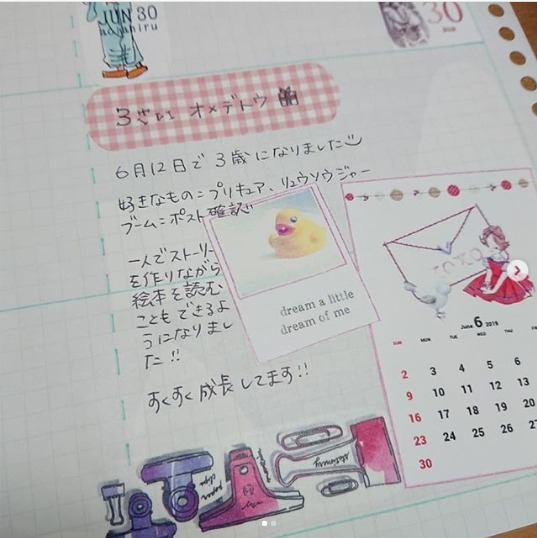 JUN 30
30
3さい オメデトウ
6月12日で3歳になりました
好きなもの=プリキュア、リュウソウジャー
ブーム=ポスト確認
一人でストーリー
を作りながら
絵本を読む
こともできるよ
うになりまし
た!!
すくすく成長してます!!
dream a little
dream of me
June 6 2019
SUN MON TUE WED THU FRI
2 3 4 5 6
9 10 11 12 13
16 17 18 19 20
23 24 25 26 27
30
paper
clips
stationery